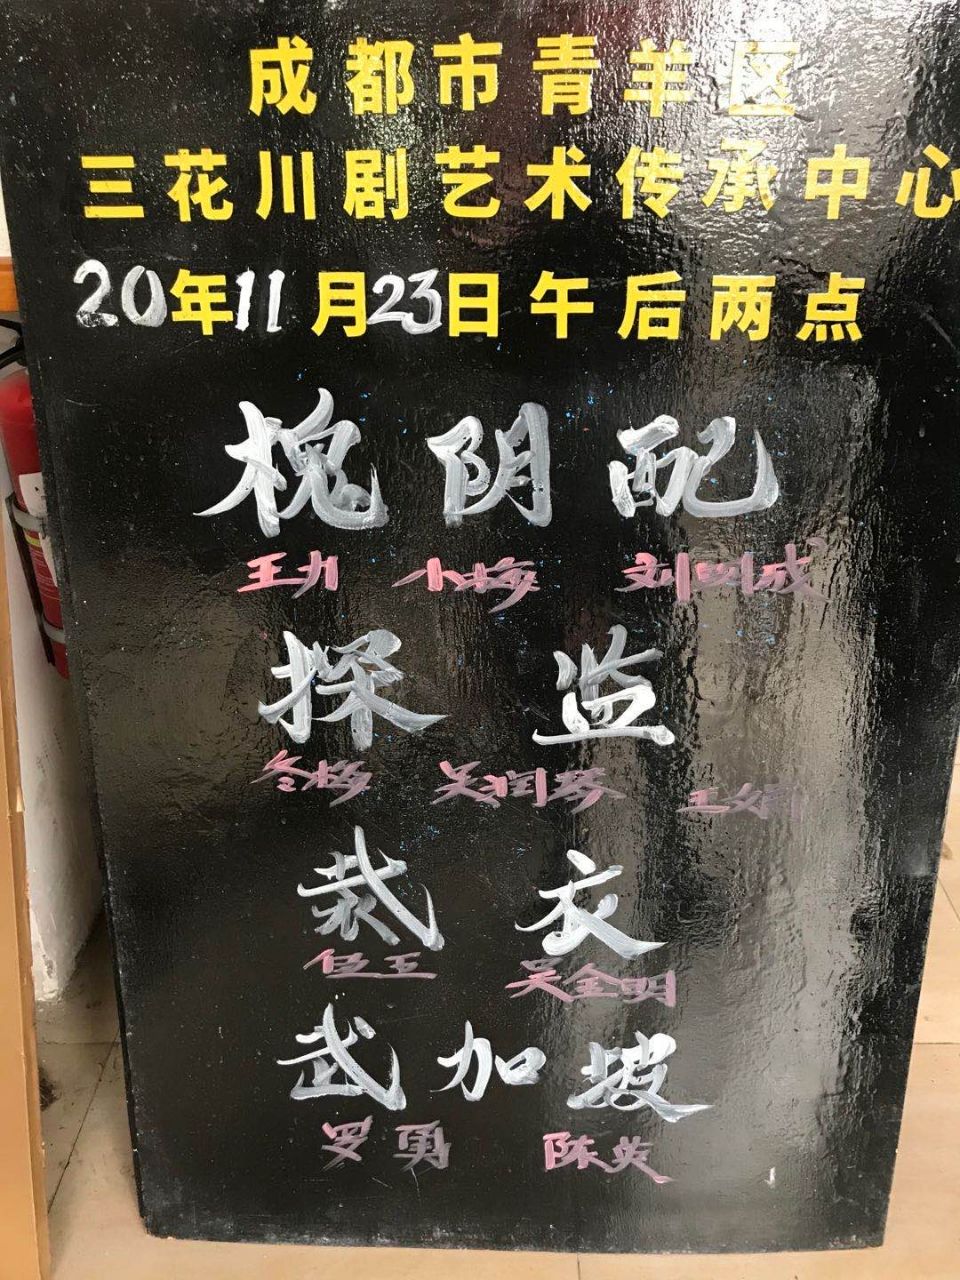 成都市青羊区
三花川剧艺术传承中心
20年11月23日午后两点
槐阴配
王升 小梅 刘明成
探监
冬梅 吴润琴 王娟
裁衣
伍玉 吴全明
武加坡
罗勇 陈英